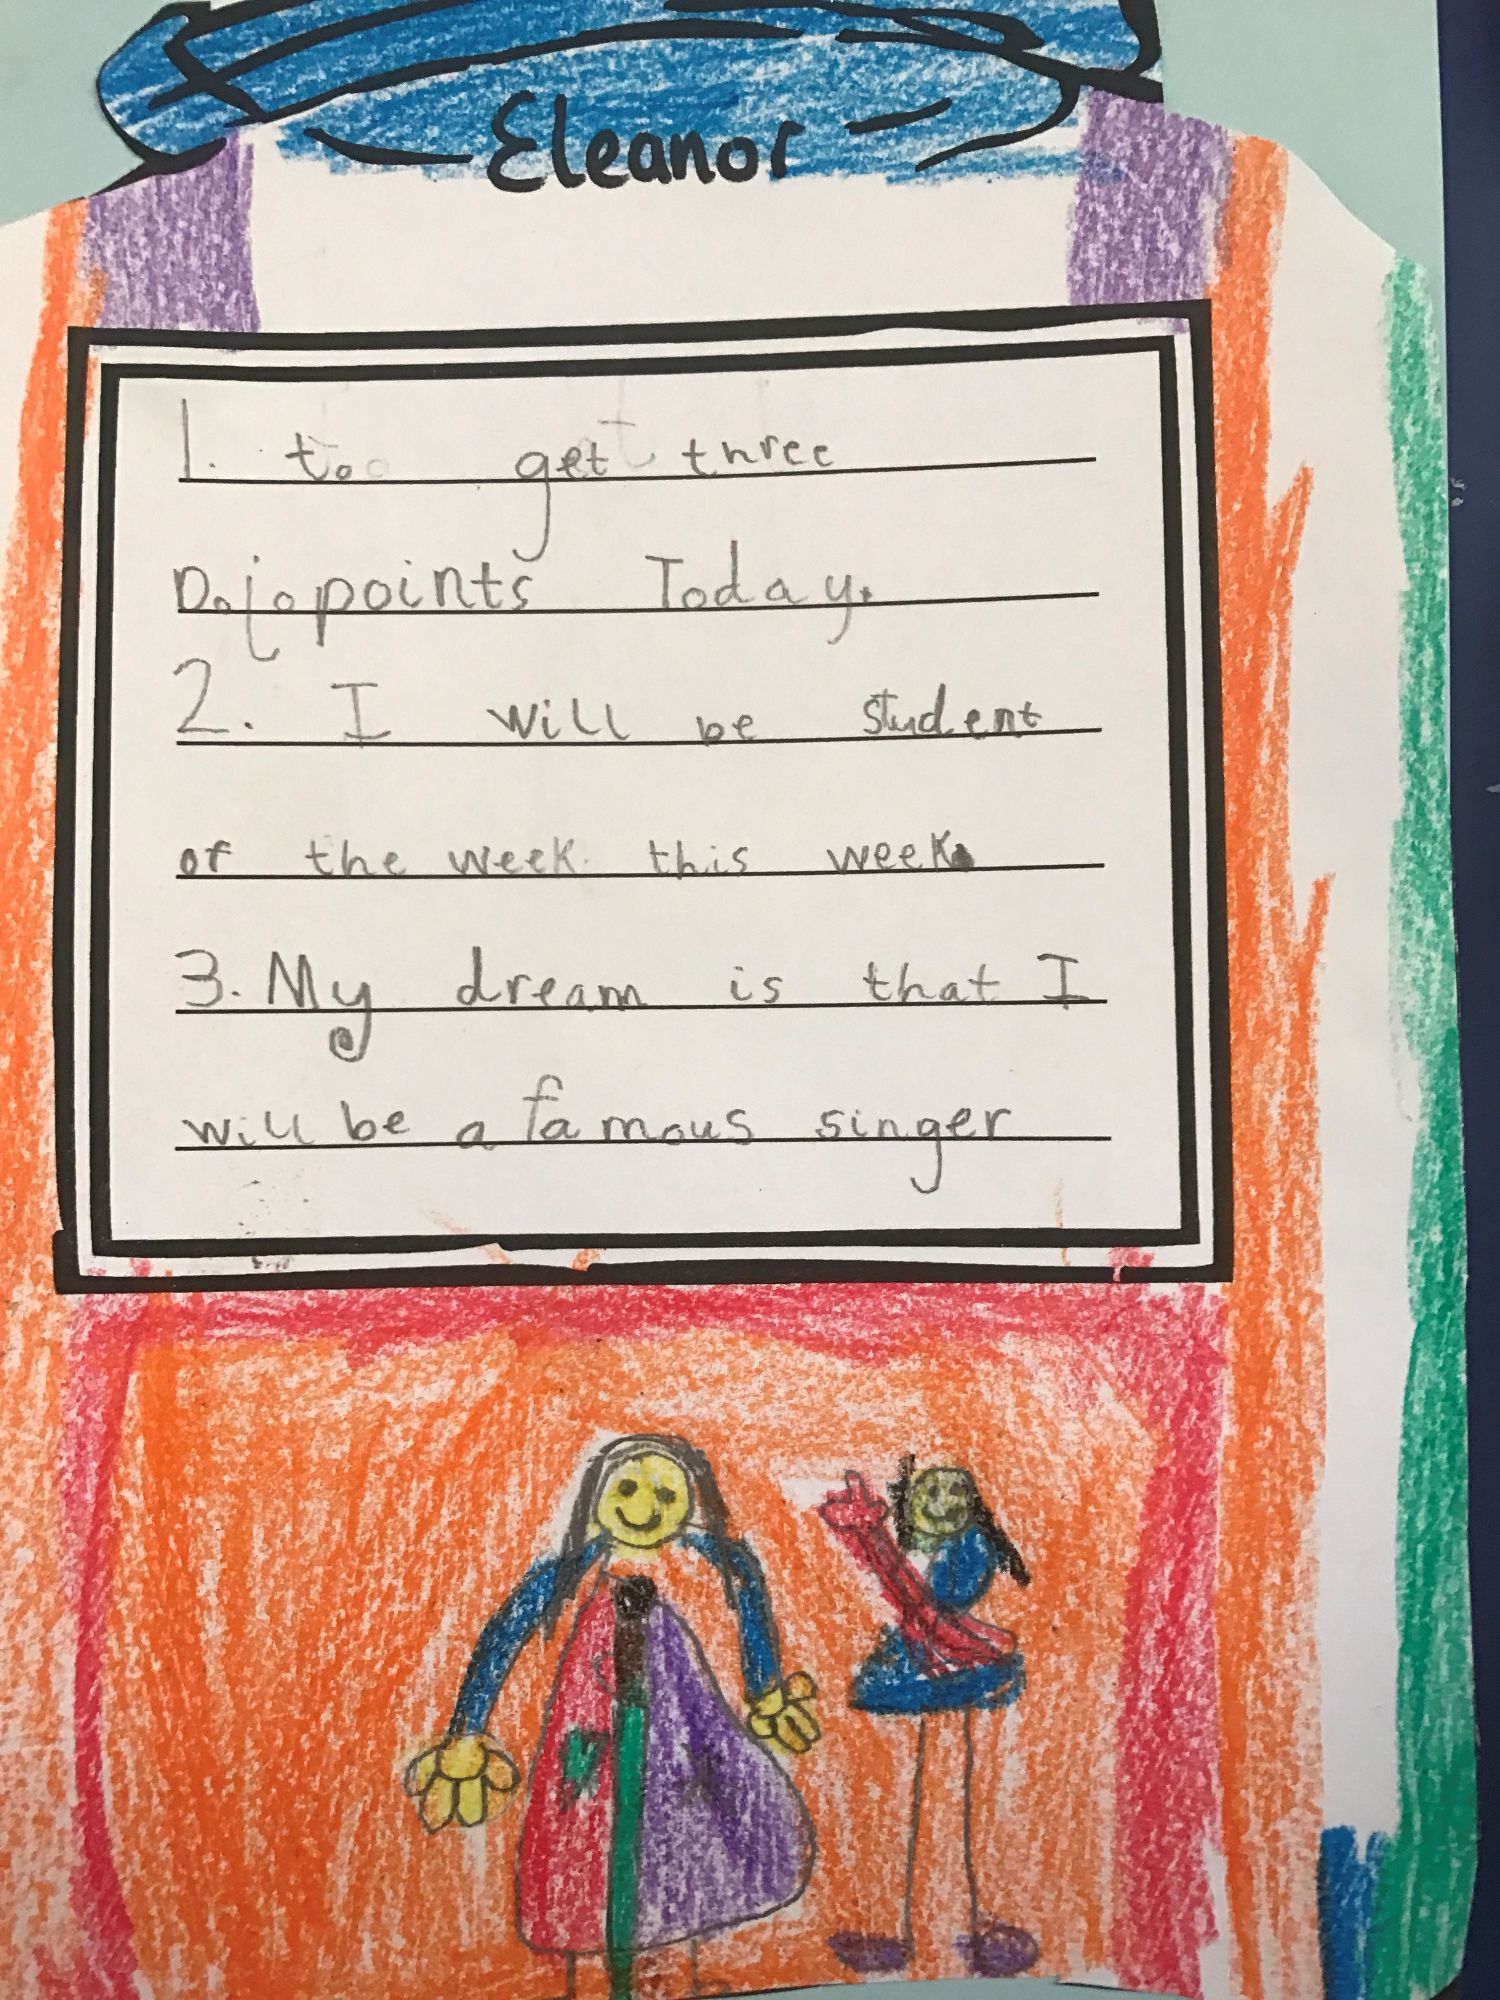 Eleanor
1. to get three
Dojopoints Today.
2. I will be student
of the week this week.
3. My dream is that I
will be a famous singer